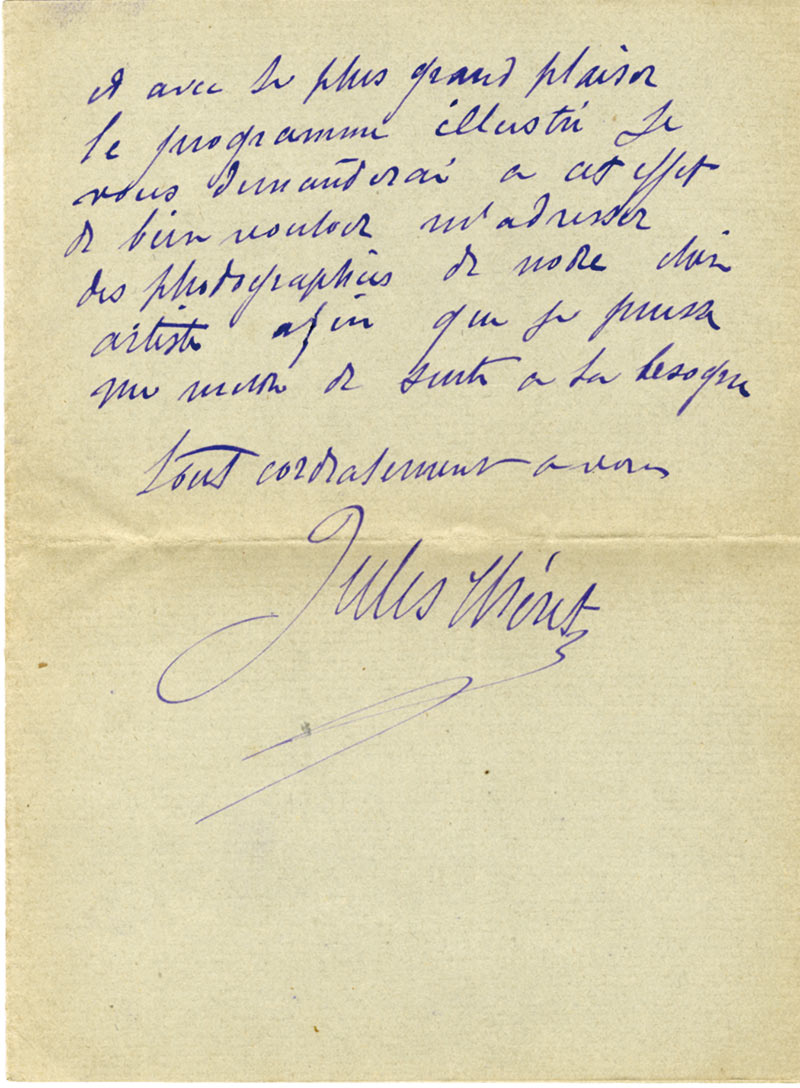 et avec le plus grand plaisir
le programme illustré Je
vous demanderai a cet effet
de bien vouloir m'adresser
des photographies de notre cher
artiste afin que je puisse
me mettre de suite a la besogne
tout cordialement a vous
Jules Chéret